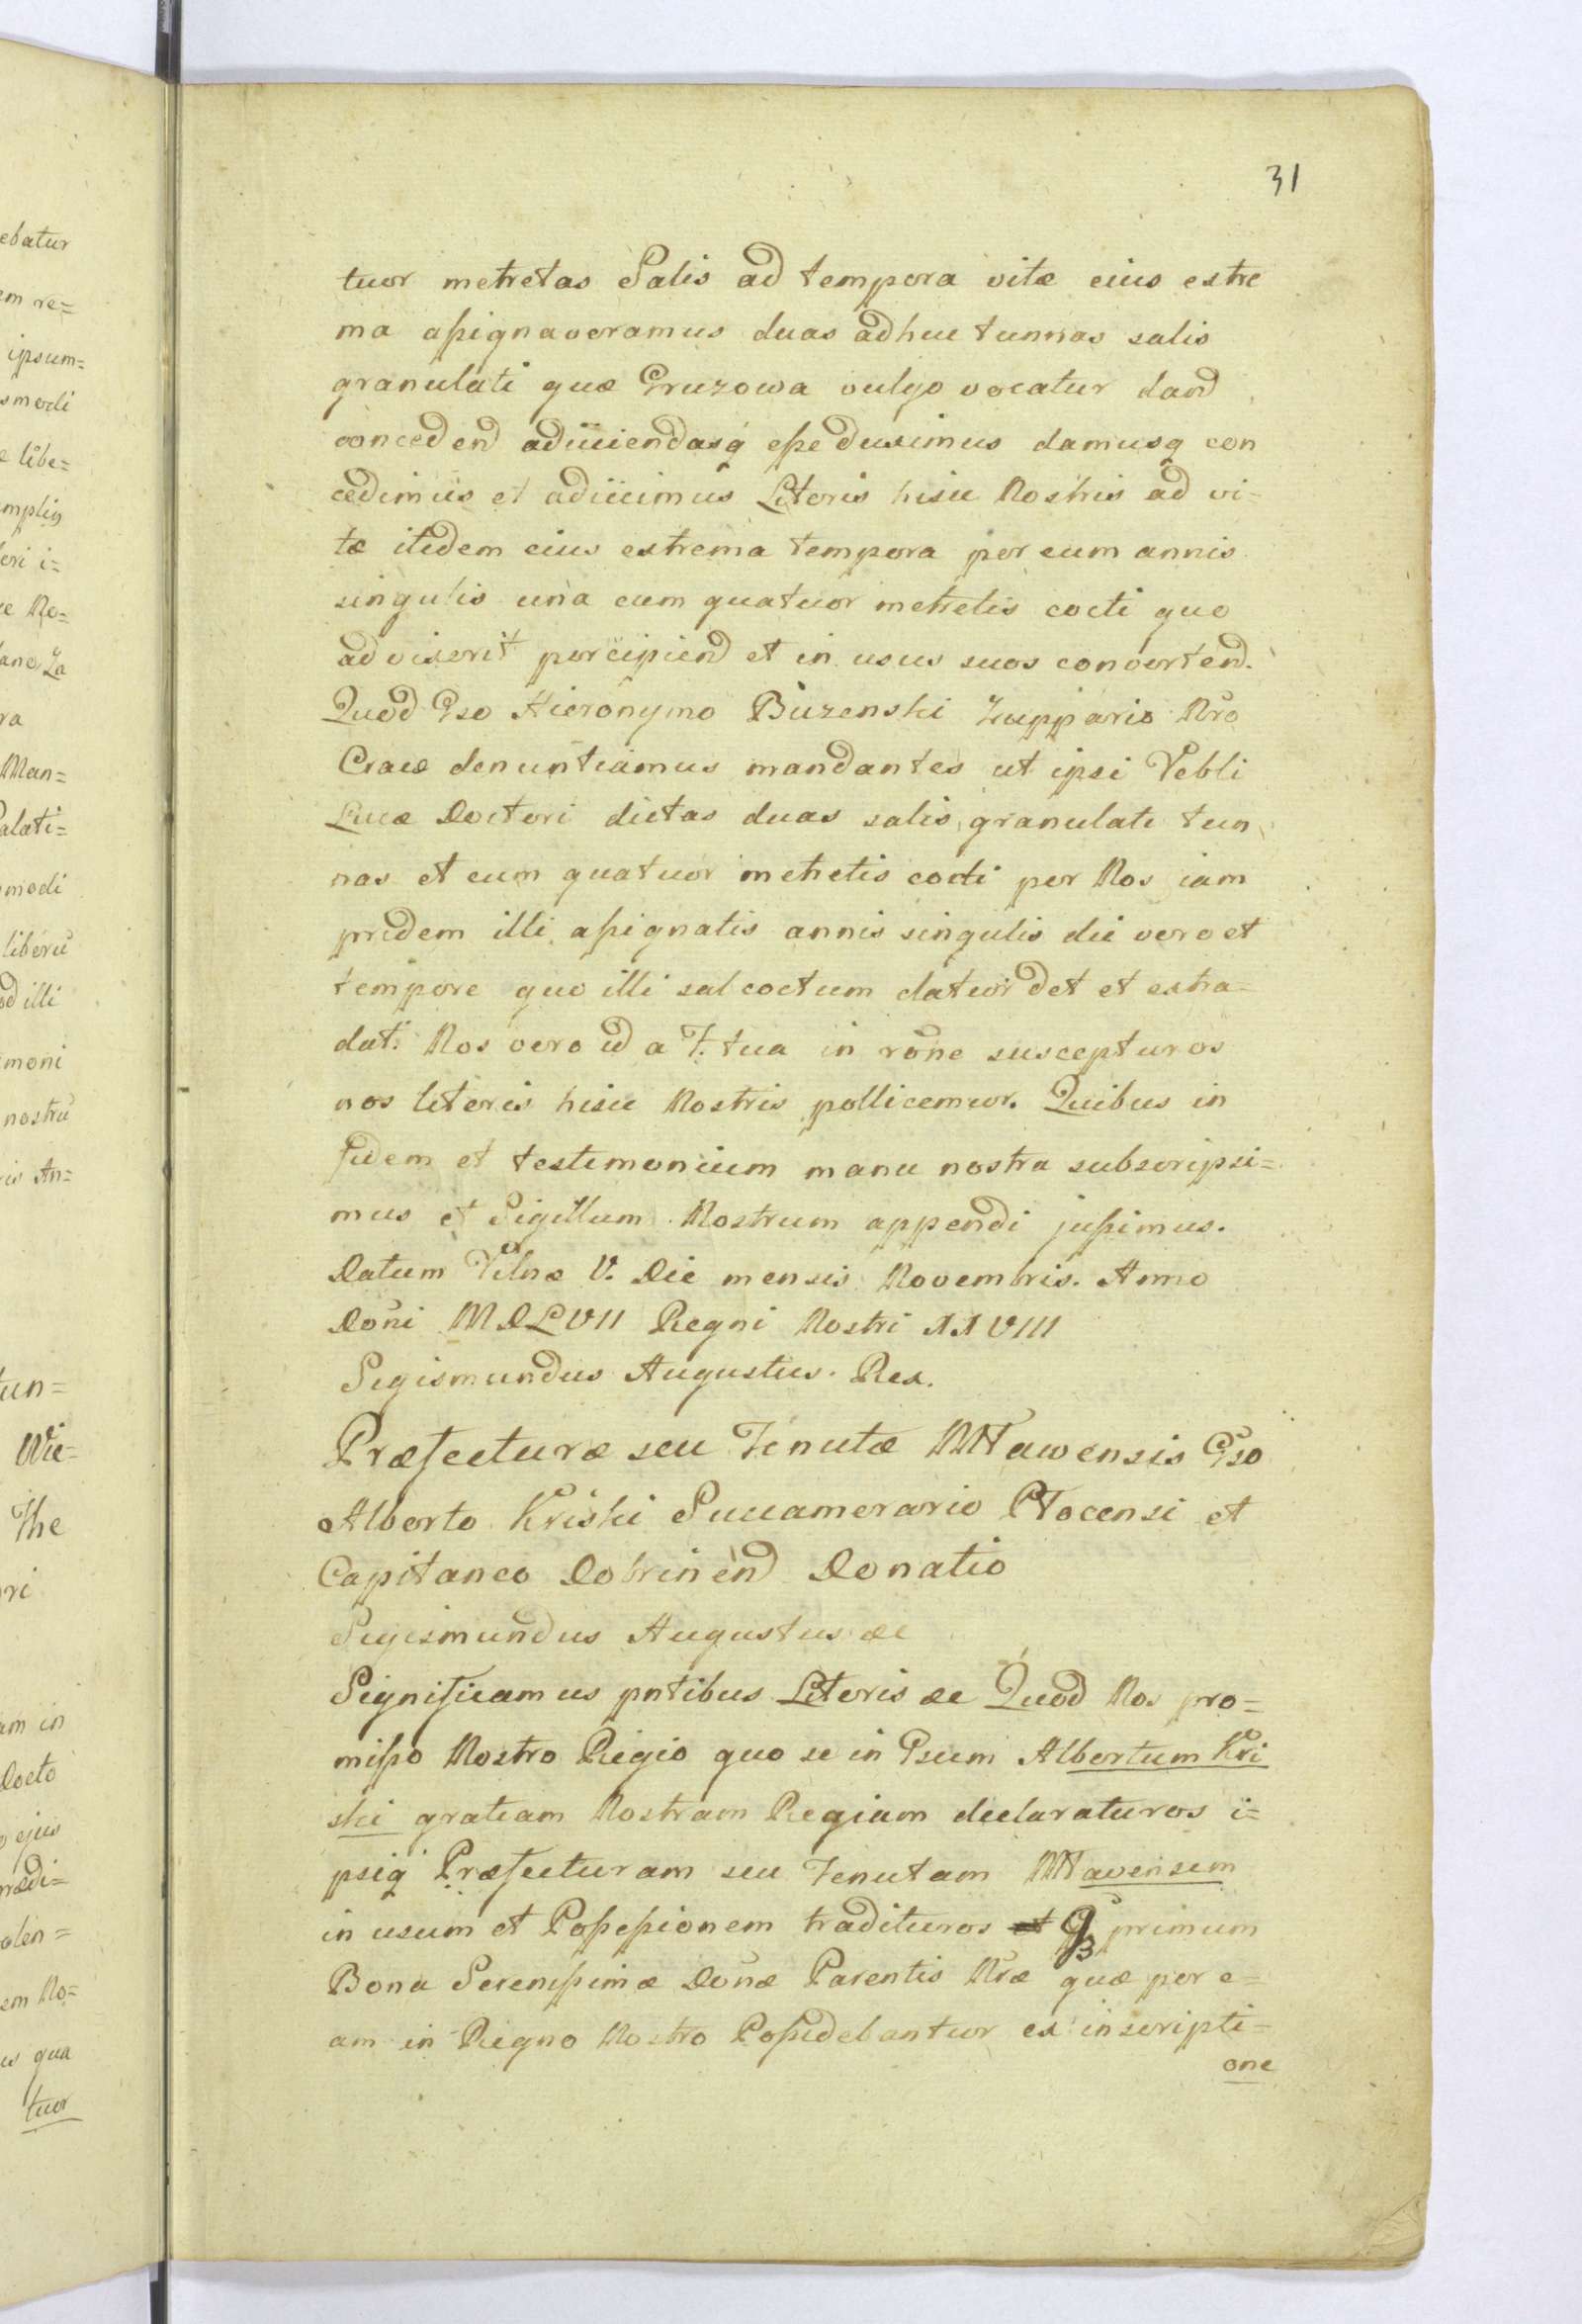 31
tuor metretas Salis ad tempora vitæ eius extre
ma assignaveramus duas adhuc tunnas salis
granulati quæ Gruzowa vulgo vocatur dand
concedend adiiciendasq esse duximus damusq con
cedimus et adiicimus Literis hisce Nostris ad vi=
tæ itidem eius extrema tempora per eum annis
singulis una cum quatuor metretis cocti quo
ad vixerit percipiend et in usus suos convertend.
Quod Gso Hieronymo Buzenski Zuppario Nro
Cracæ denuntiamus mandantes ut ipsi Vebli
Lucæ Doctori dictas duas salis granulati tun
nas et cum quatuor metretis cocti per Nos iam
pridem illi assignatis annis singulis die vero et
tempore quo illi sal coctum datur det et extra=
dat. Nos vero id a F. tua in rōne suscepturos
nos literis hisce Nostris pollicemur. Quibus in
fidem et testimonium manu nostra subscripsi=
mus et Sigillum Nostrum appendi jussimus.
Datum Vilnæ V. Die mensis Novembris. Anno
Doni MDLVII Regni Nostri XXVIII
Sigismundus Augustus. Rex.
Præfecturæ seu Tenutæ Mławensis Gso
Alberto Kriski Succamerario Płocensi et
Capitaneo Dobrinend Donatio
Sigismundus Augustus &c
Significamus pntibus Literis &c Quod Nos pro=
misso Nostro Regio quo se in Gsum Albertum Kri
ski gratiam Nostram Regiam declaraturos i=
psiq Præfecturam seu Tenutam Mławensem
in usum et Possessionem tradituros et primum
Bona Serenissimæ Donæ Parentis Nræ quæ per e=
am in Regno Nostro Possidebantur ex inscripti=
one